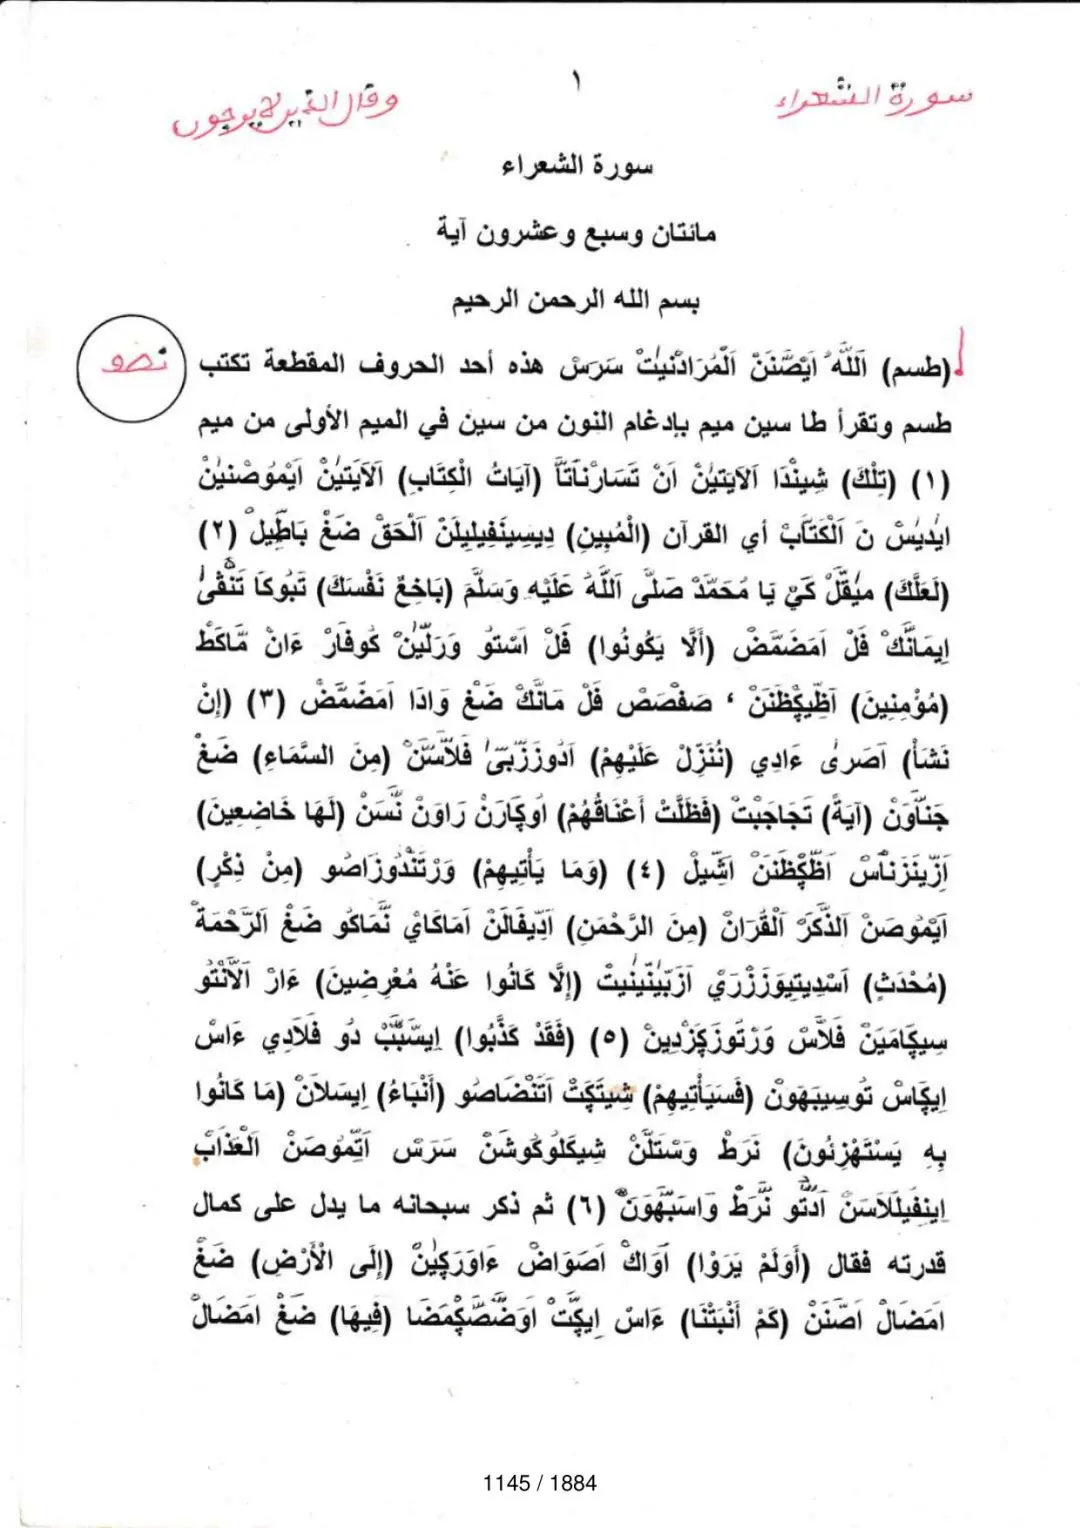 سورة الشعراء
١
وقال الذين لا يرجون
سورة الشعراء
مائتان وسبع وعشرون آية
بسم الله الرحمن الرحيم
نصو
(طسم) اَللَّهُ اَيَصَّنَنْ اَلْمُرَادْنَيِتْ سَرَسْ هذه أحد الحروف المقطعة تكتب
طسم وتقرأ طا سين ميم بإدغام النون من سين في الميم الأولى من ميم
(١) (تِلْكَ) شِينْدَا اَلآيَتَيْنْ اَنْ تَسَارْنَاتَّا (آيَاتُ الْكِتَابِ) اَلآيَتَيْنْ اَيْمُوصْنَيْنْ
اِيْدِيْسْ نَ اَلْكَتَابْ أي القرآن (الْمُبِينِ) دِيسِينَفِيلِيلَنْ اَلْحَقْ ضَغْ بَاطِيلْ (٢)
(لَعَلَّكَ) مَيْقَلْ كَيْ يَا مُحَمَّدْ صَلَّى اَللَّهُ عَلَيْهِ وَسَلَّمَ (بَاخِعٌ نَفْسَكَ) تَبُوكَا تَنْقَىْ
اِيمَانَّكْ فَلْ اَمَضَمَّضْ (أَلَّا يَكُونُوا) فَلْ اَسْتَوْ وَرَلَّيْنْ كُوفَارْ ءَانْ مَّاكَطْ
(مُؤْمِنِينَ) اَظِّيكِظَنَنْ ، صَفْصَصْ فَلْ مَانَّكْ ضَغْ وَادَا اَمَضَمَّضْ (٣) (إِنْ
نَشَأْ) اَصَرىْ ءَادِي (نُنَزِّلْ عَلَيْهِمْ) اَدُوزَزْبَىْ فَلاَّسَّنْ (مِنَ السَّمَاءِ) ضَغْ
جَنَّاوَنْ (آيَةً) تَجَاجَبْتْ (فَظَلَّتْ أَعْنَاقُهُمْ) اُوكَارَنْ رَاوَنْ نَّسَنْ (لَهَا خَاضِعِينَ)
اَزِّينَزْنَاسْ اَظِّكِظَنَنْ اَشِّيلْ (٤) (وَمَا يَأْتِيهِمْ) وَرْتَنْدُوزَاصُو (مِنْ ذِكْرٍ)
اَيْمُوصَنْ اَلذْكَرْ اَلْقُرَانْ (مِنَ الرَّحْمَنِ) اَدِّيفَالَنْ اَمَاكَايْ نَّمَاكُو ضَغْ اَلرَّحْمَةْ
(مُحْدَثٍ) اَسْدِيتِيوَزَزْرَيْ اَزَبَّيْنَيْنِيتْ (إِلَّا كَانُوا عَنْهُ مُعْرِضِينَ) ءَارْ اَلاَنْتُو
سِيكَامَيَنْ فَلاَّسْ وَرْتُوزَكَزْدِينْ (٥) (فَقَدْ كَذَّبُوا) اِيسَّبَّبْ دُو فَلاَدِي ءَاسْ
اِيكَاسْ تُوسِيبَهَوَنْ (فَسَيَأْتِيهِمْ) شِيتَكِتْ اَتَنْضَاصُو (أَنْبَاءُ) اِيسَلاَنْ (مَا كَانُوا
بِهِ يَسْتَهْزِئُونَ) نَرَطْ وَسْتَلَّنْ شِيكَلُوكُوشَنْ سَرَسْ اَتِّمُوصَنْ اَلْعَذَابْ
اِينَفِيلَلاَسَنْ اَدَتُّو نَّرَطْ وَاسَبَّهَوَنْ (٦) ثم ذكر سبحانه ما يدل على كمال
قدرته فقال (أَوَلَمْ يَرَوْا) اَوَاكْ اَصَوَاضْ ءَاوَرَكَيْنْ (إِلَى الْأَرْضِ) ضَغْ
اَمَضَالْ اَصَّنَنْ (كَمْ أَنْبَتْنَا) ءَاسْ اِيكَتْ اَوَضَّصَّكَمَضَا (فِيهَا) ضَغْ اَمَضَالْ
1145 / 1884